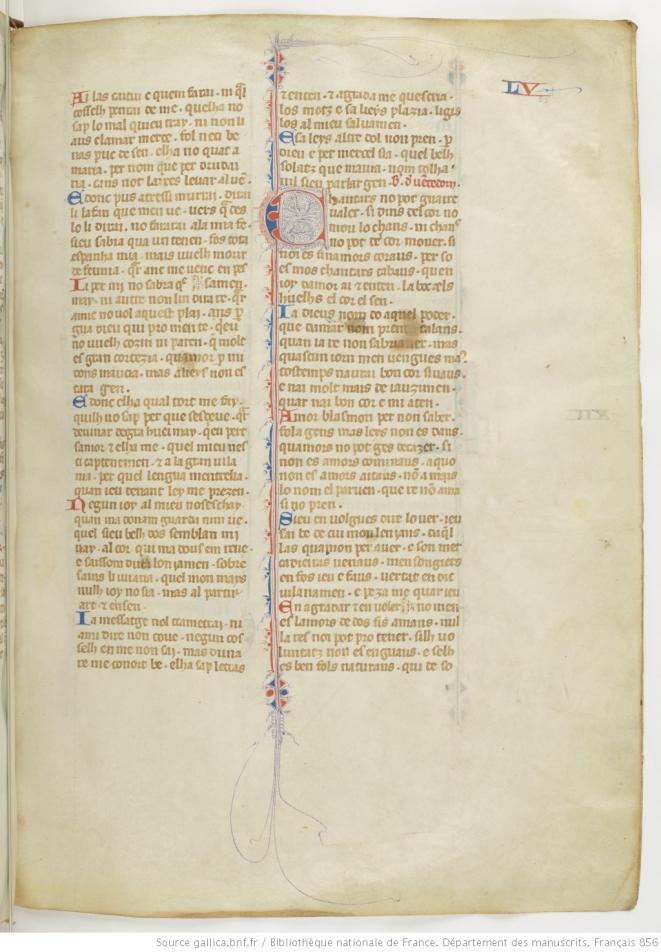 LV
Ai las caitiu e quem farai · ni ql
cosselh penrai de me · quelha no
sap lo mal quieu tray · ni non li
aus clamar merce · fol nec be
nas puc de sen · elha no
per nom que per
Edonc pus atressi murrai · dirai
li lafan que men ve · vers q̄ ades
lo li dirai · no farai ala mia fe ·
sieu sabia qua un tenen · fos tota
espanha mia · mais vuelh morir
de feunia · qr anc me venc en pes
La per mi no sabra qs
may · ni autre non lin dira re · qr
amic no vol aquest plai · ans per
gua dieu qui pro men te · qeu
no vuelh cozin ni paren · q̄ molt
es gran cortezia · quamor p mi
dons maucia · mas alieys non es
tara gen ·
Edonc elha qual tort me fay ·
quilh no sap per que sesdeve · qr
devinar degra huei may · qeu per
samor · & elha me · quel mieu nes
ci captenemen · & a la gran vila
nia · per quel lengua mentrelia ·
quan ieu denant ley me prezen ·
Negun ioy al mieu noseschay ·
quan ma donam guarda nim ve ·
quel sieu belh dos semblan mi
vay · al cor qui ma dous em reve ·
e saissom dura lonjamen · sobre
sains li iuraria · quel mon mays
nulh ioy no sia · mas al partir
art & ensen ·
La messatge nol trametrai · ni
ami dire non cove · negun cos
selh en me non sai · mas duna
re me conort be · elha sap letras
& enten · & agrada me quescria
los motz e sa lieys plazia · legis
los al mieu salvamen ·
Esa leys altre dol non pren · p
dieu e per merce sia · quel belh
solatz que mavia · nom tolha
nil sieu parlar gen · B. d̄ ventedorn ·
Chantars no pot guaire
valer · si dins del cor no
mou lo chans · ni chans
no pot de cor mover · si
noi es finamors coraus · per so
es mos chantars cabaus · quen
ioy damor ai & enten · la boca els
huelhs el cor el sen ·
Ia dieus nom do aquel poder ·
que damar nom prenda talans ·
quan ia re non sabria aver · mas
quascun iorn men vengues mals
costemps naurai bon cor sivaus ·
e nai molt mais de iauzimen ·
quar nai bon cor e mi aten ·
Amor blasmon per non saber ·
fola gens mas leys non es dans ·
quamors no pot ges decazer · si
non es amors comunaus · aquo
non es amors aitaus · nō a mais
lo nom el parven · que re nō ama
si no pren ·
Sieu en volgues dire lo ver · ieu
sai be de cui mou lenjans · daqˡ
las quamon per aver · e son mer
cadieiras venaus · mensongiers
en fos ieu e faus · vertat en dic
vilanamen · e peza me quar ieu
En agradar & en voler · no men
es lamors de dos fis amans · nul
la res noi pot pro tener · silh vo
luntatz non es enguaus · e selh
es ben fols naturaus · qui de so
Source gallica.bnf.fr / Bibliothèque nationale de France. Département des manuscrits. Français 856